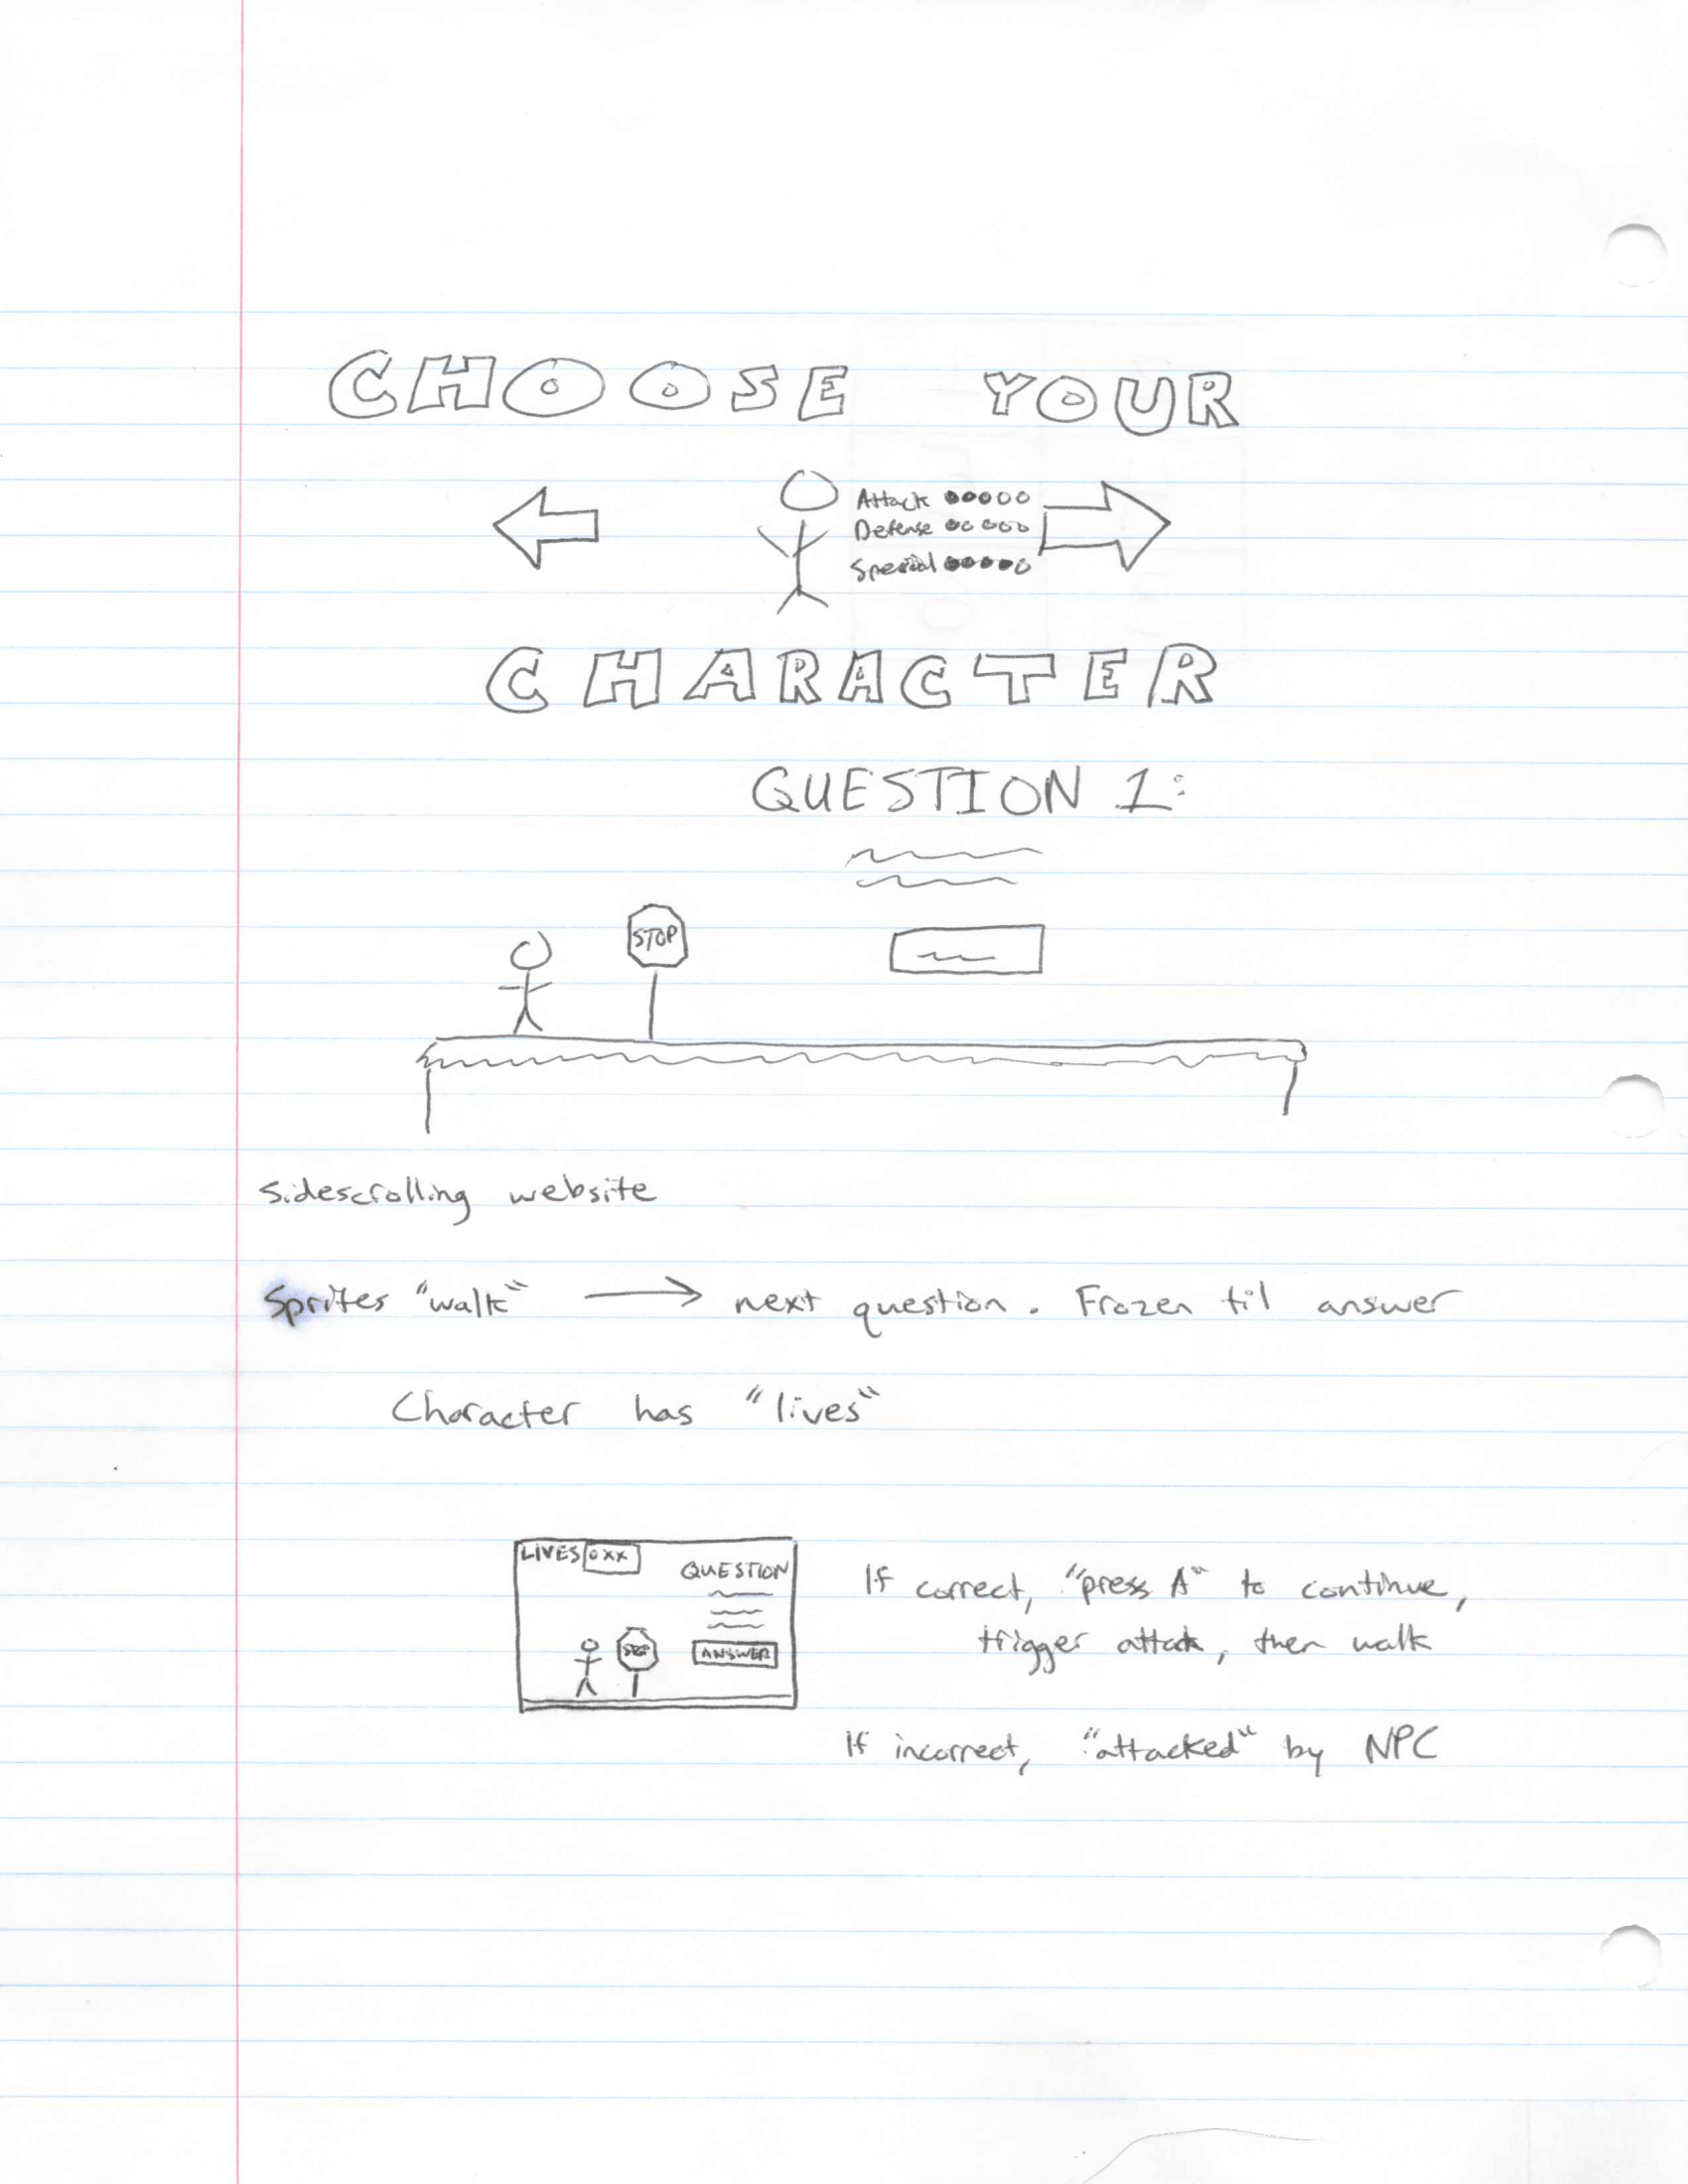 CHOOSE YOUR
Attack
Defense
Special
CHARACTER
QUESTION 1:
STOP
Sidescrolling website
Sprites "walk" → next question. Frozen til answer
Character has "lives"
LIVES OXX
QUESTION
STOP
ANSWER
If correct, "press A" to continue,
trigger attack, then walk
If incorrect, "attacked" by NPC